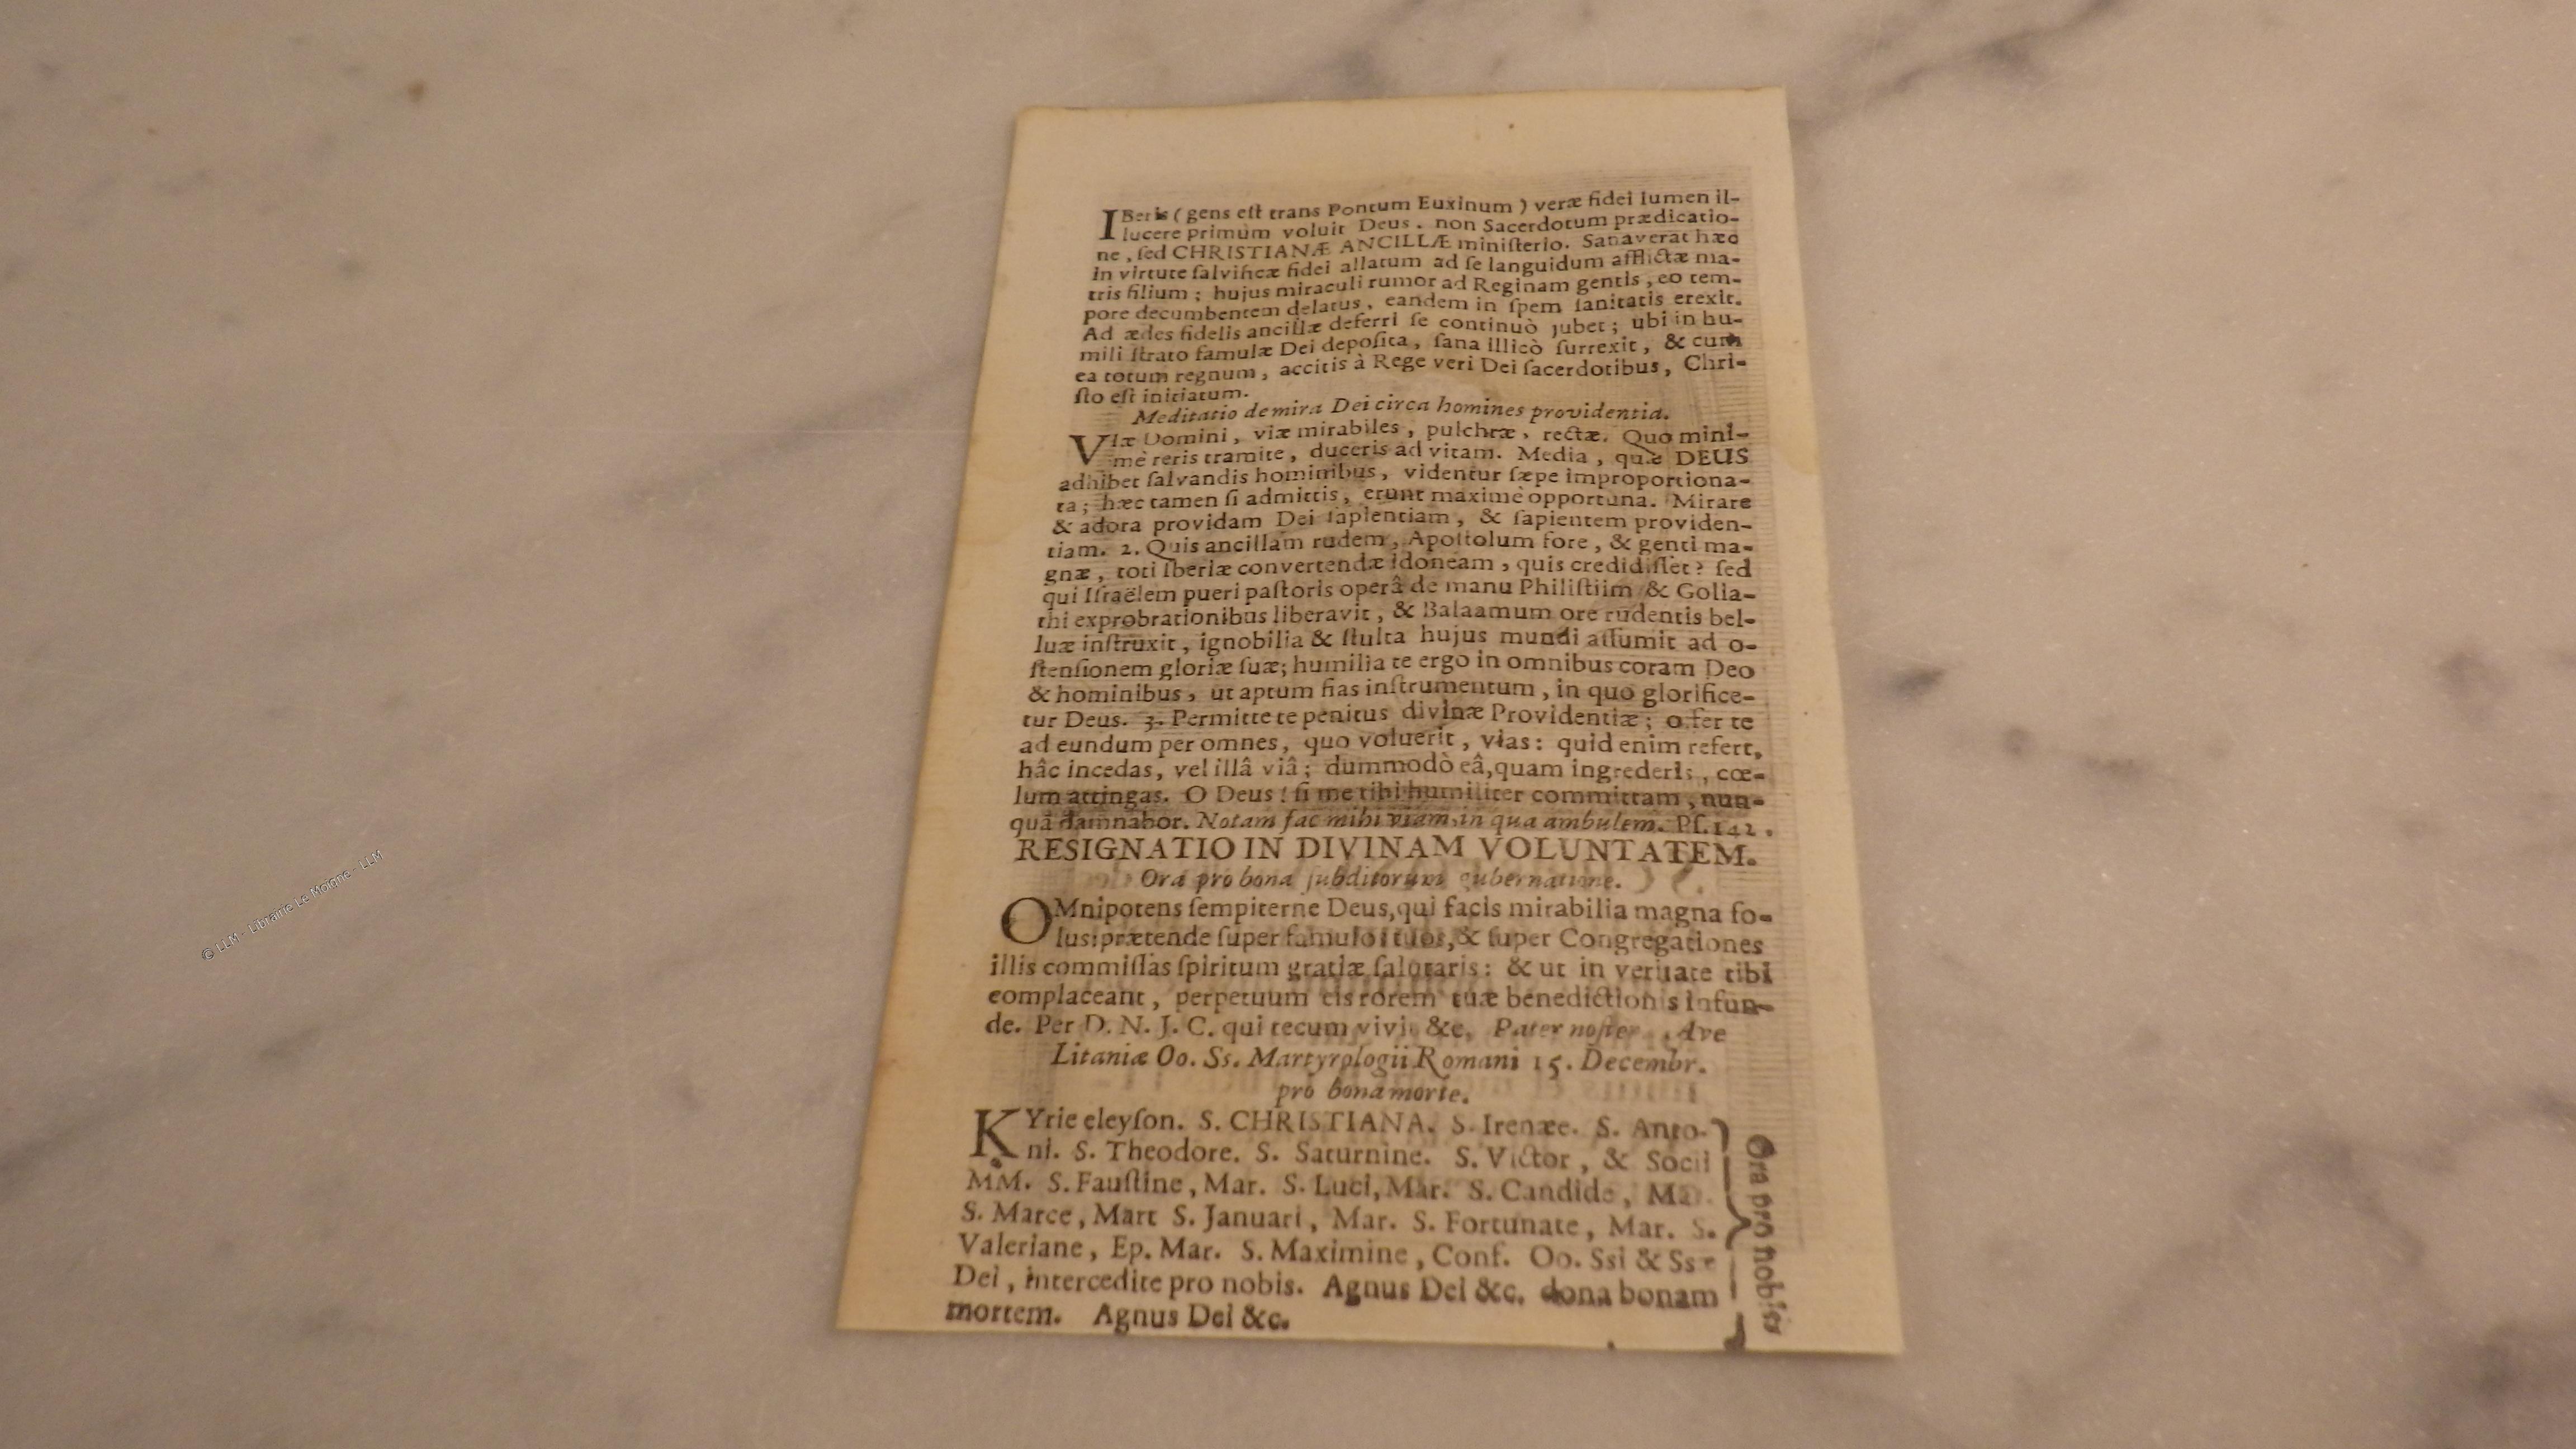 IBeris ( gens eſt trans Pontum Euxinum ) veræ fidei lumen il-
lucere primùm voluit Deus. non Sacerdotum prædicatio-
ne, ſed CHRISTIANÆ ANCILLÆ miniſterio. Sanaverat hæc
in virtute ſalvificæ fidei allatum ad ſe languidum afflictæ ma-
tris filium; hujus miraculi rumor ad Reginam gentis, eo tem-
pore decumbentem delatus, eandem in ſpem ſanitatis erexit.
Ad ædes fidelis ancillæ deferri ſe continuò jubet; ubi in hu-
mili ſtrato famulæ Dei depoſita, ſana illicò ſurrexit, & cum
ea totum regnum, accitis à Rege veri Dei ſacerdotibus, Chri-
ſto eſt initiatum.
Meditatio de mira Dei circa homines providentia.
VIæ Domini, viæ mirabiles, pulchræ, rectæ. Quo mini-
mè reris tramite, duceris ad vitam. Media, quæ DEUS
adhibet ſalvandis hominibus, videntur ſæpe improportiona-
ta; hæc tamen ſi admittis, erunt maximè opportuna. Mirare
& adora providam Dei ſapientiam, & ſapientem providen-
tiam. 2. Quis ancillam rudem, Apoſtolum fore, & genti ma-
gnæ, toti Iberiæ convertendæ idoneam, quis credidiſſet? ſed
qui Iſraëlem pueri paſtoris operâ de manu Philiſtiim & Golia-
thi exprobrationibus liberavit, & Balaamum ore rudentis bel-
luæ inſtruxit, ignobilia & ſtulta hujus mundi aſſumit ad o-
ſtenſionem gloriæ ſuæ; humilia te ergo in omnibus coram Deo
& hominibus, ut aptum fias inſtrumentum, in quo glorifice-
tur Deus. 3. Permitte te penitus divinæ Providentiæ; offer te
ad eundum per omnes, quo voluerit, vias: quid enim refert,
hâc incedas, vel illâ viâ; dummodò eâ, quam ingrederis, cœ-
lum attingas. O Deus! ſi me tibi humiliter committam, nun-
quā damnabor. Notam fac mihi viam, in qua ambulem. Pſ. 142.
RESIGNATIO IN DIVINAM VOLUNTATEM.
Ora pro bona ſubditorum gubernatione.
OMnipotens ſempiterne Deus, qui facis mirabilia magna ſo-
lus: prætende ſuper famulos tuos, & ſuper Congregationes
illis commiſſas ſpiritum gratiæ ſalutaris: & ut in veritate tibi
complaceant, perpetuum eis rorem tuæ benedictionis infun-
de. Per D. N. J. C. qui tecum vivit &c. Pater noſter, Ave
Litaniæ Oo. Ss. Martyrologii Romani 15. Decembr.
pro bona morte.
KYrie eleyſon. S. CHRISTIANA. S. Irenæe. S. Anto-
ni. S. Theodore. S. Saturnine. S. Victor, & Socii
MM. S. Fauſtine, Mar. S. Luci, Mar. S. Candide, Mar.
S. Marce, Mart S. Januari, Mar. S. Fortunate, Mar. S.
Valeriane, Ep. Mar. S. Maximine, Conf. Oo. Ssi & Ssæ
Dei, intercedite pro nobis. Agnus Dei &c. dona bonam
mortem. Agnus Dei &c.
Ora pro nobis
© LLM - Librairie Le Moigne - LLM